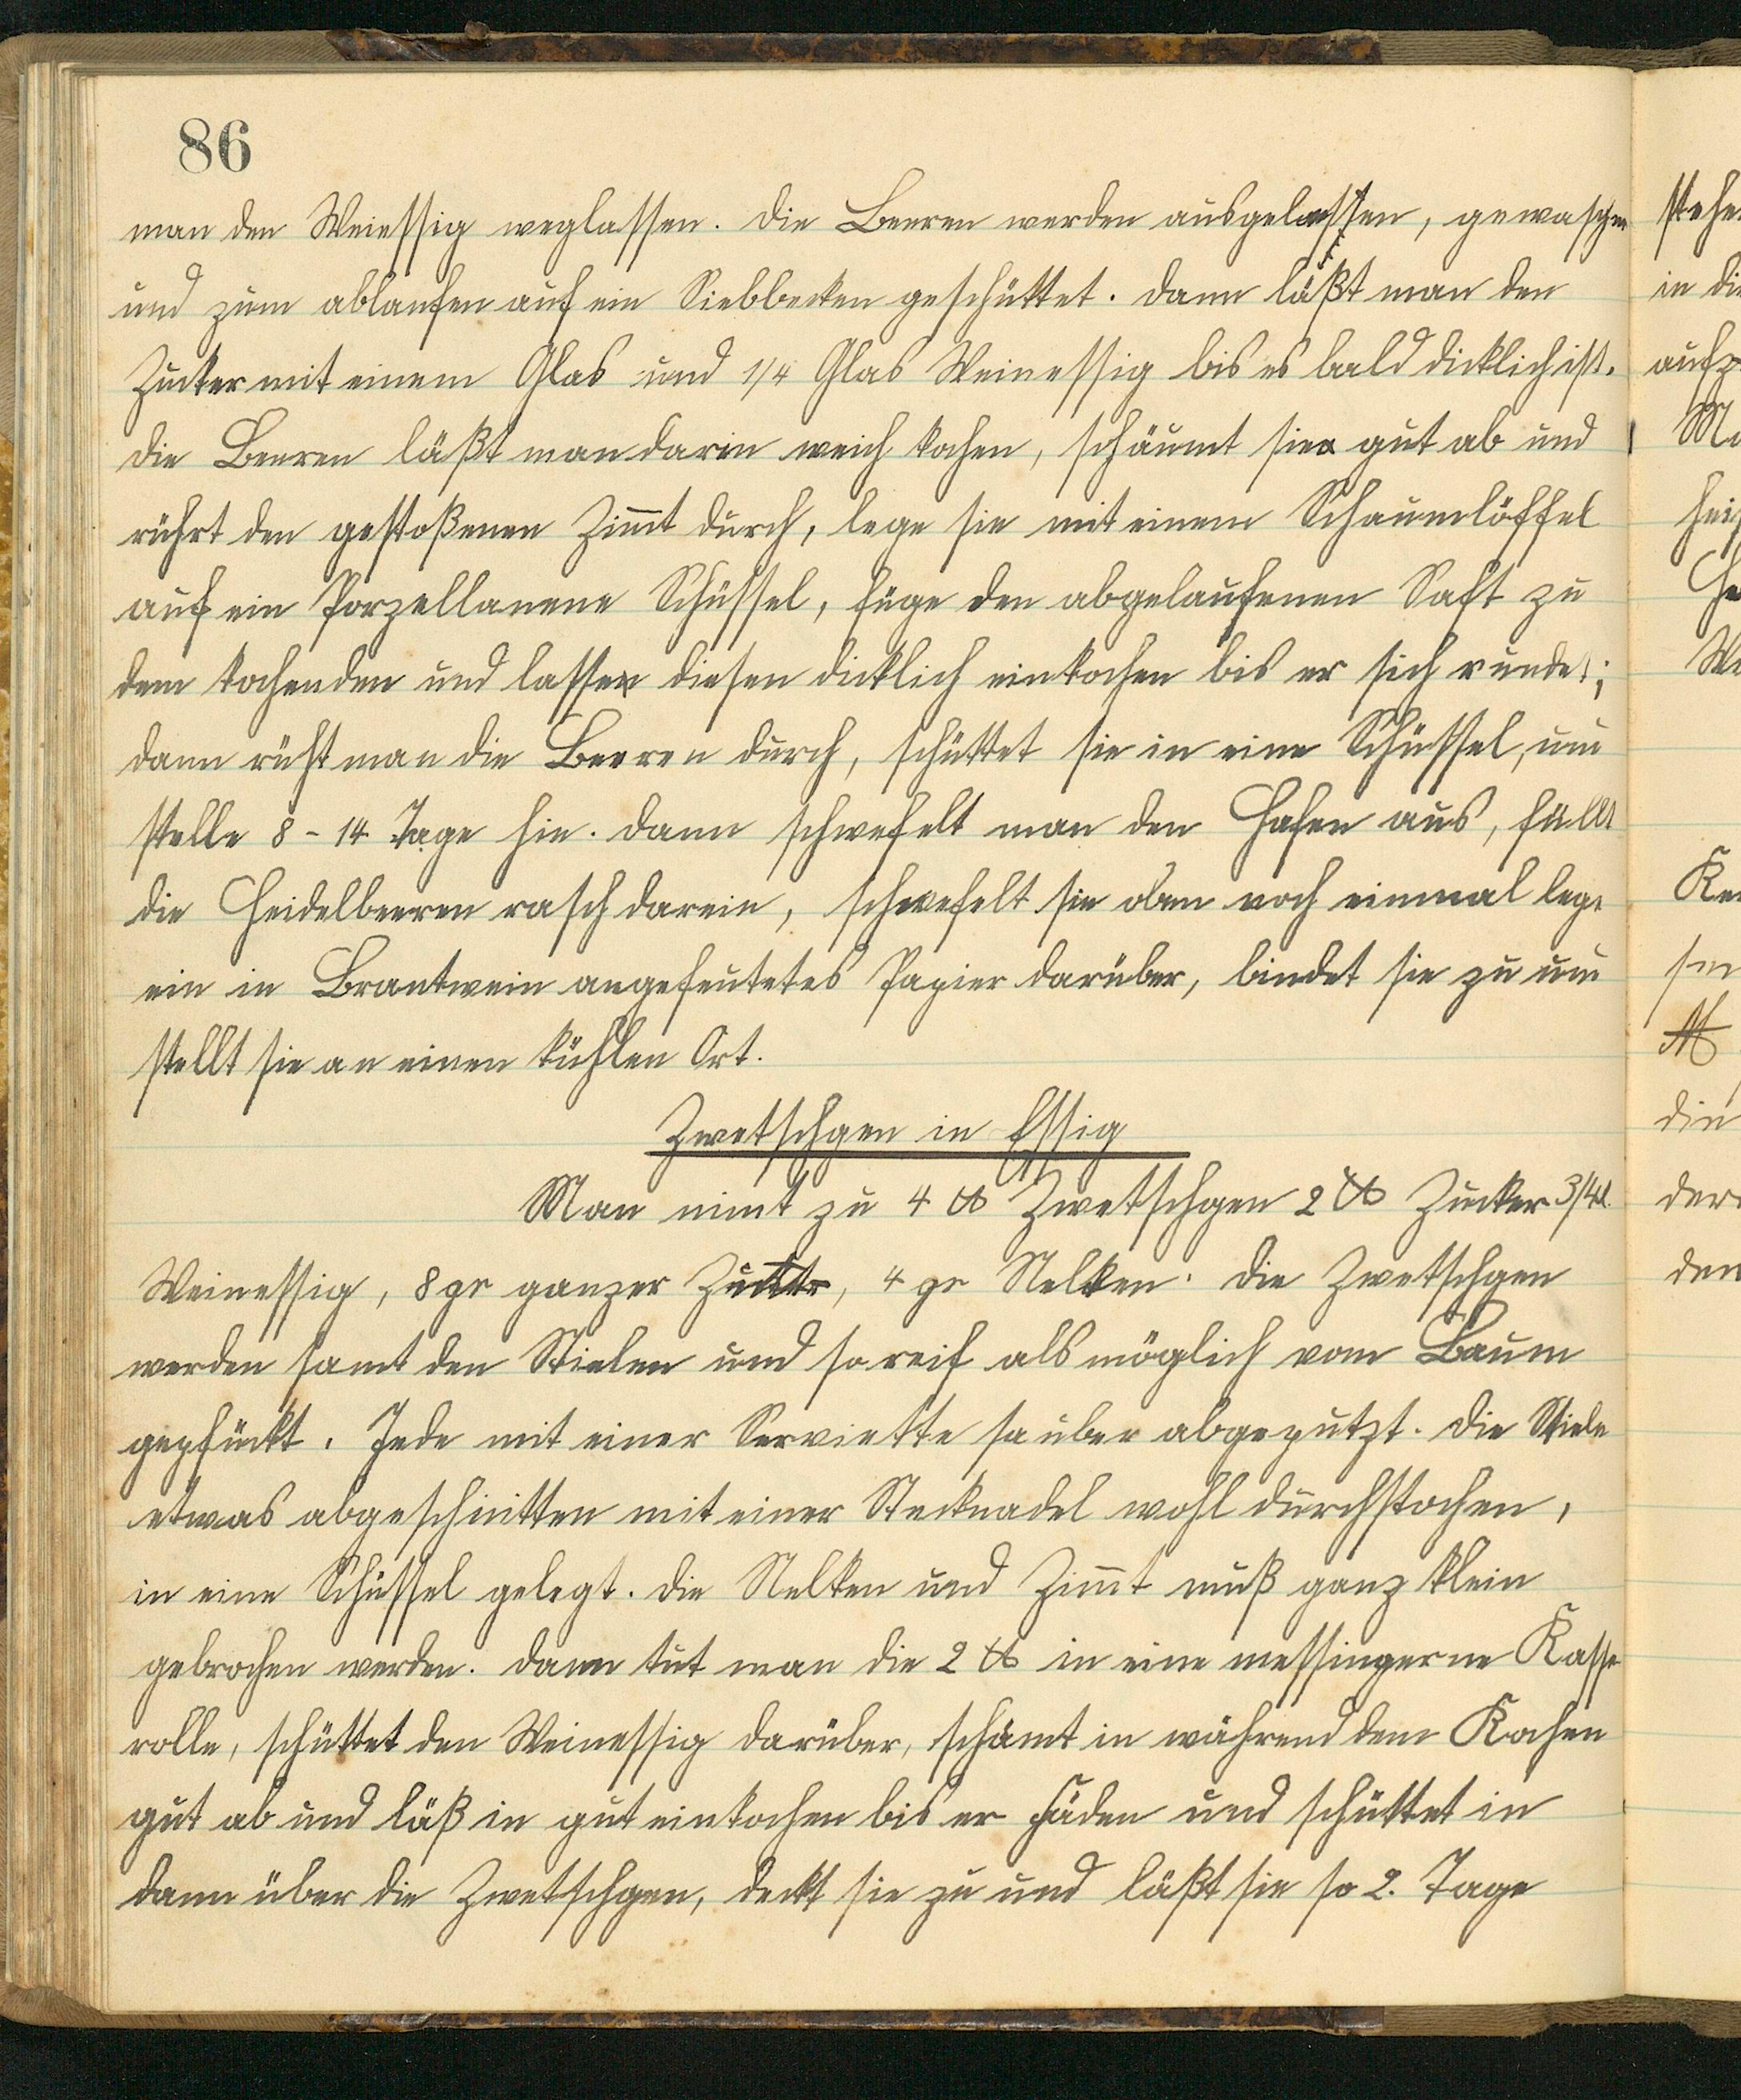 86
man den Weiessig weglassen. Die Beeren werden ausgelassen, gewaschen
und zum ablaufen auf ein Siebbecken geschüttet. Dann läßt man den
Zucker mit einem Glas und 1/4 Glas Weinessig bis es bald dicklich ist.
Die Beeren läßt man darin weich kochen, schäumt sie gut ab und
rührt den gestoßenen Zimt durch, lege sie mit einem Schaumlöffel
auf ein Porzellanene Schüssel, füge den abgelaufenen Saft zu
dem kochenden und lassen diesen dicklich einkochen bis er sich rundet;
dann rüht man die Beeren durch, schüttet sie in eine Schüssel, un
stelle 8 - 14 Tage hin. Dann schwefelt man den Hafen aus, füllt
die Heidelbeeren rasch darein, schwefelt sie oben noch einmal lege
ein in Brantwein angefeutetes Papier darüber, bindet sie zu un
stellt sie an einen kühlen Ort.
Zwetschgen in Essig
Man nimt zu 4 ℔ Zwetschgen 2 ℔ Zucker 3/4 l.
Weinessig, 8 gr ganzer, 4 gr Nelken. Die Zwetschgen
werden samt den Stielen und so reif als möglich vom Baum
gepfückt. Jede mit einer Serviette sauber abgeputzt. Die Stiele
etwas abgeschnitten mit einer Stecknadel wohl durchstochen,
in eine Schüssel gelegt. Die Nelken und Zimt muß ganz klein
gebrochen werden. Dann tut man die 2 ℔ in eine messingerne Kasse
rolle, schüttet den Weinessig darüber, schämt in während dem Kochen
gut ab und läß in gut einkochen bis er Fäden und schüttet in
dann über die Zwetschgen, deckt sie zu und läßt sie so 2. Tage